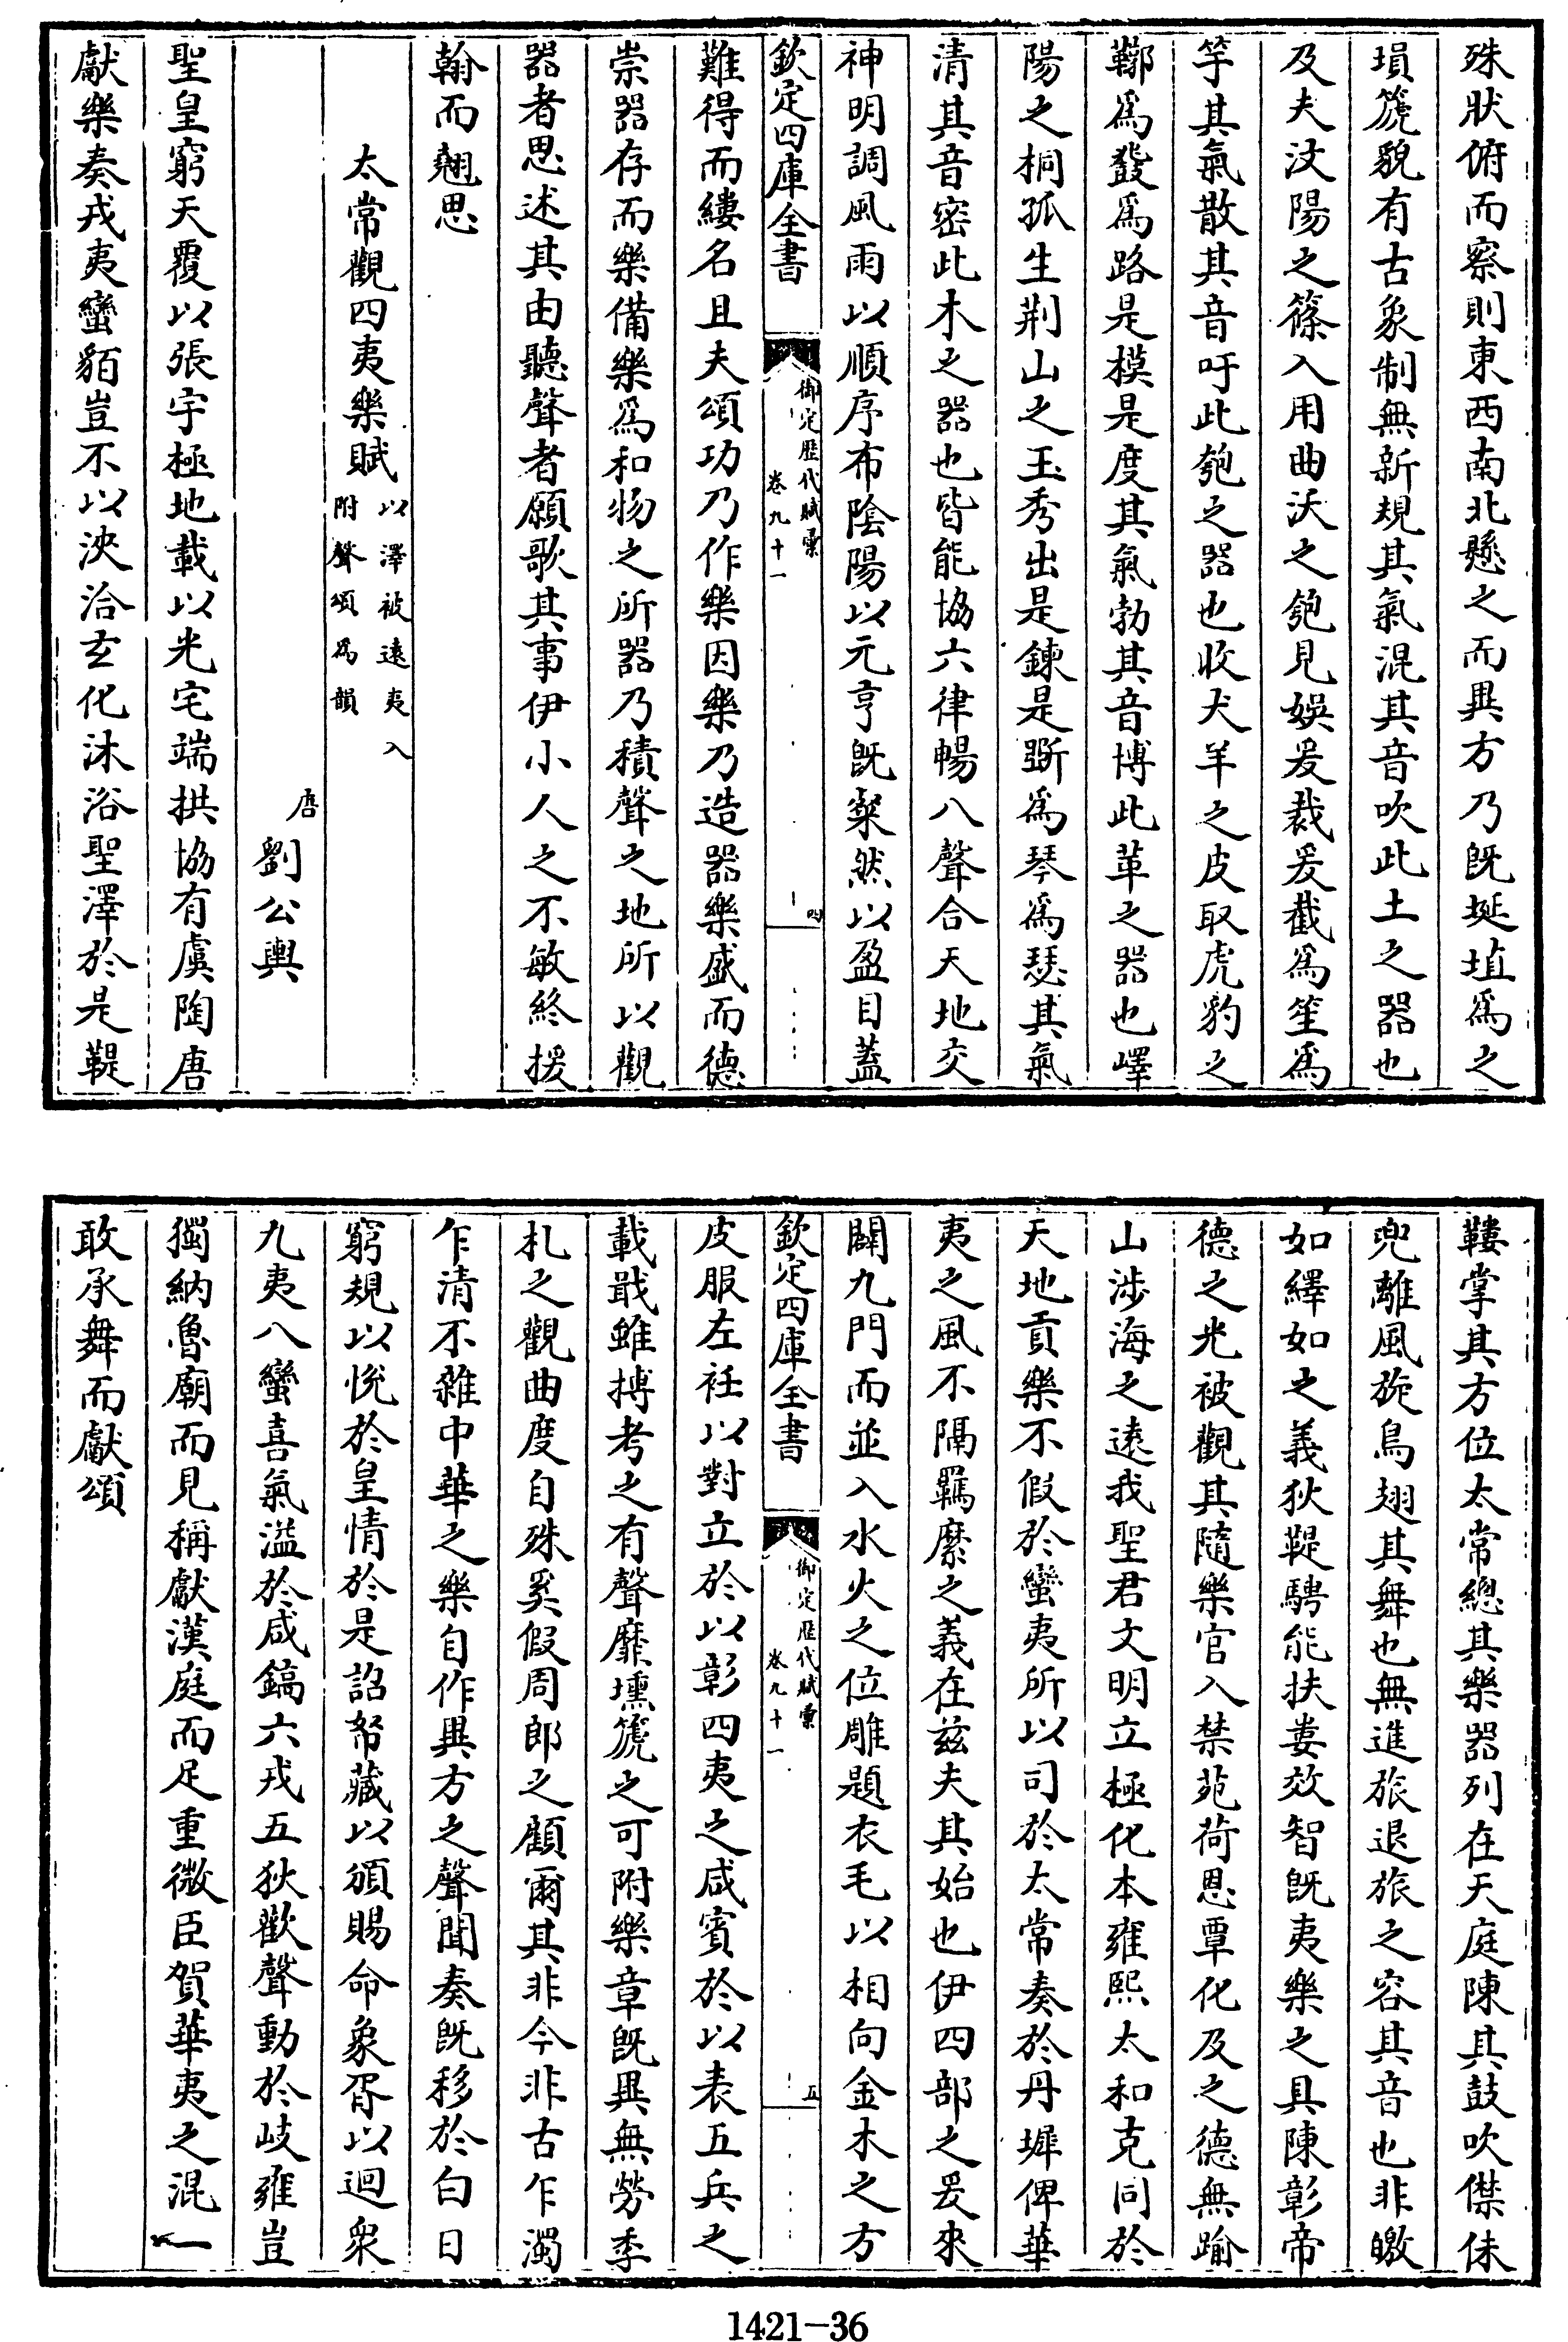 殊狀俯而察則東西南北懸之而異方乃旣埏埴爲之
塤箎貌有古象制無新規其氣混其音吹此土之器也
及夫汶陽之篠入用曲沃之匏見娛爰裁爰截爲笙爲
竽其氣散其音吁此匏之器也收犬羊之皮取虎豹之
鞹爲鼗爲路是模是度其氣勃其音博此革之器也嶧
陽之桐孤生荆山之玉秀出是鍊是斲爲琴爲瑟其氣
清其音密此木之器也皆能協六律暢八聲合天地交
神明調風雨以順序布陰陽以元亨旣粲然以盈目蓋
欽定四庫全書
御定歷代賦彙
卷九十一
四
難得而縷名且夫頌功乃作樂因樂乃造器樂盛而德
崇器存而樂備樂爲和物之所器乃積聲之地所以觀
器者思述其由聽聲者願歌其事伊小人之不敏終援
翰而翹思
太常觀四夷樂賦
以澤被遠夷入
附聲頌爲韻
唐
劉公輿
聖皇窮天覆以張宇極地載以光宅端拱協有虞陶唐
獻樂奏戎夷蠻貊豈不以泱洽玄化沐浴聖澤於是鞮
鞻掌其方位太常總其樂器列在天庭陳其鼓吹僸佅
兜離風旋鳥翅其舞也無進旅退旅之容其音也非皦
如繹如之義狄鞮騁能扶婁效智旣夷樂之具陳彰帝
德之光被觀其隨樂官入禁苑荷恩覃化及之德無踰
山涉海之遠我聖君文明立極化本雍熙太和克同於
天地貢樂不假於蠻夷所以司於太常奏於丹墀俾華
夷之風不隔羈縻之義在茲夫其始也伊四部之爰來
闢九門而並入水火之位雕題衣毛以相向金木之方
欽定四庫全書
御定歷代賦彙
卷九十一
五
皮服左衽以對立於以彰四夷之咸賓於以表五兵之
載戢雖搏考之有聲靡壎箎之可附樂章旣異無勞季
札之觀曲度自殊奚假周郎之顧爾其非今非古乍濁
乍清不雜中華之樂自作異方之聲聞奏旣移於白日
窮規以悅於皇情於是詔帑藏以頒賜命象胥以迴衆
九夷八蠻喜氣溢於咸鎬六戎五狄歡聲動於岐雍豈
獨納魯廟而見稱獻漢庭而足重微臣賀華夷之混一
敢承舞而獻頌
1421-36